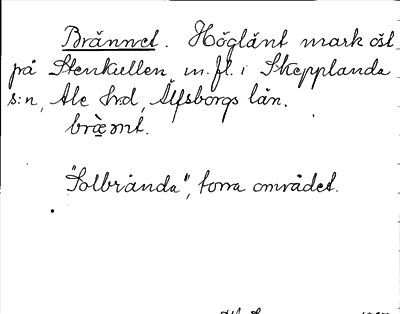 Brännet. Höglänt mark öst
på Stenkullen m.fl. i Skepplanda
s:n, Ale hd, Älfsborgs län.
bræmt.
"Solbrända", torra området.